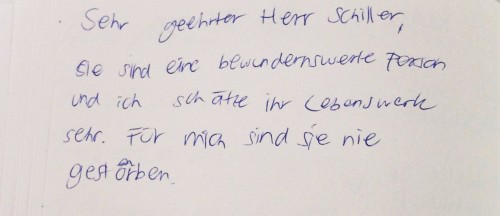 Sehr geehrter Herr Schiller,
Sie sind eine bewundernswerte Person
und ich schätze ihr Lebenswerk
sehr. Für mich sind sie nie
gestorben.